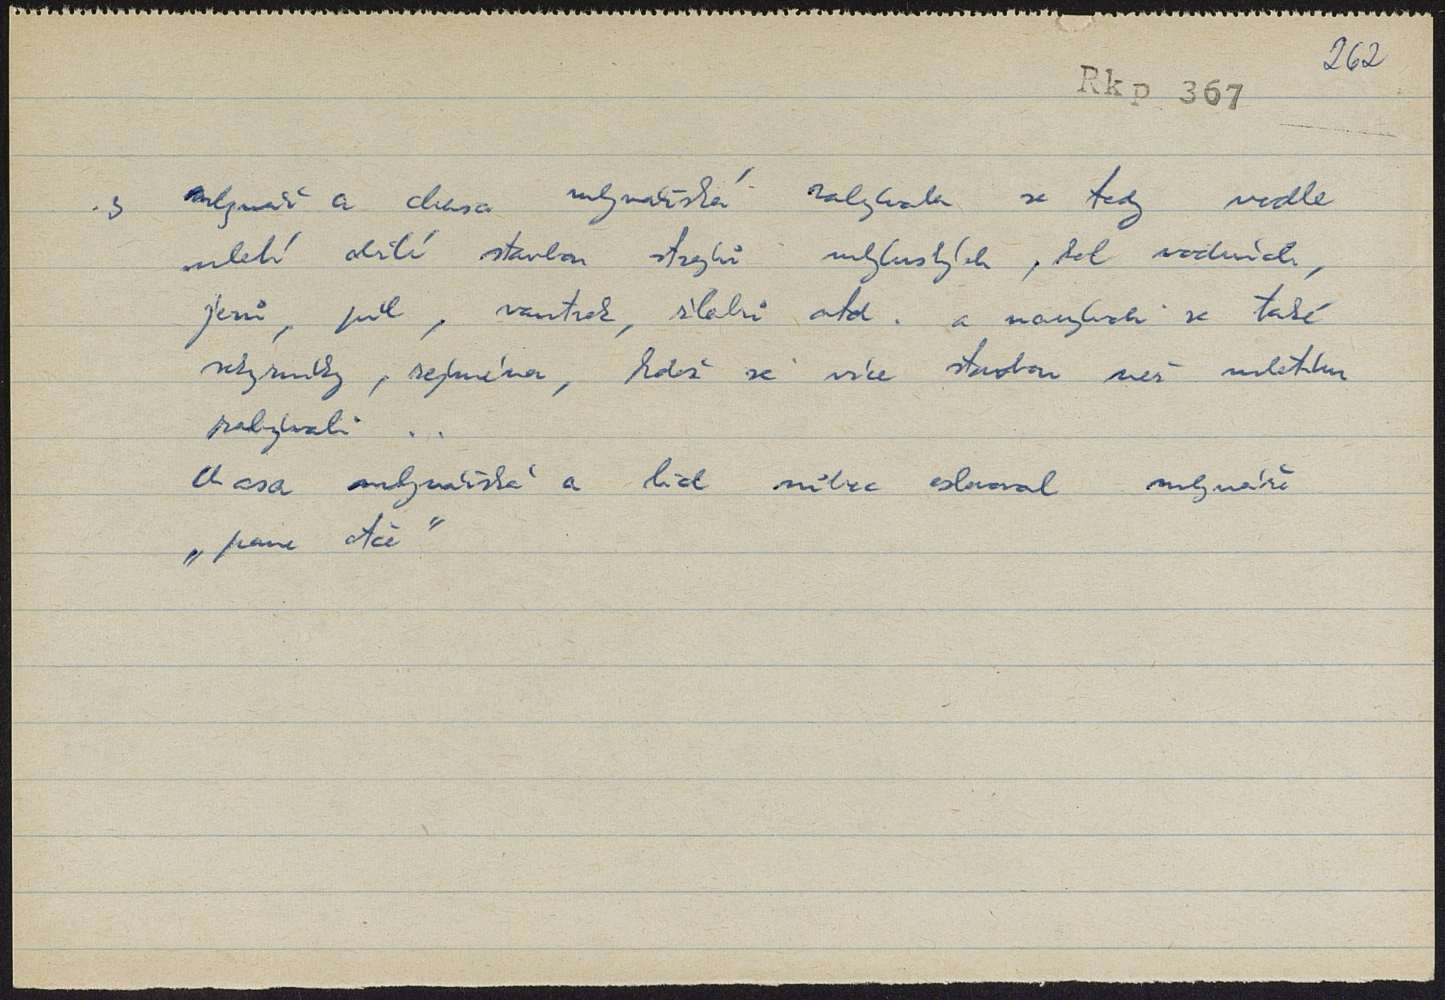 262
Rkp 367
. s mlynáři a chasa mlynářská zabývala se tedy vedle
mletí obilí stavbou strojů mlýnských, kol vodních,
jezů, pil, vantrok, žlabů atd. a nazývali se také
sekyrníky, zejména, když se více stavbou než mletím
zabývali ..
Chasa mlynářská a lid nitře oslovoval mlynáře
„pane otče"